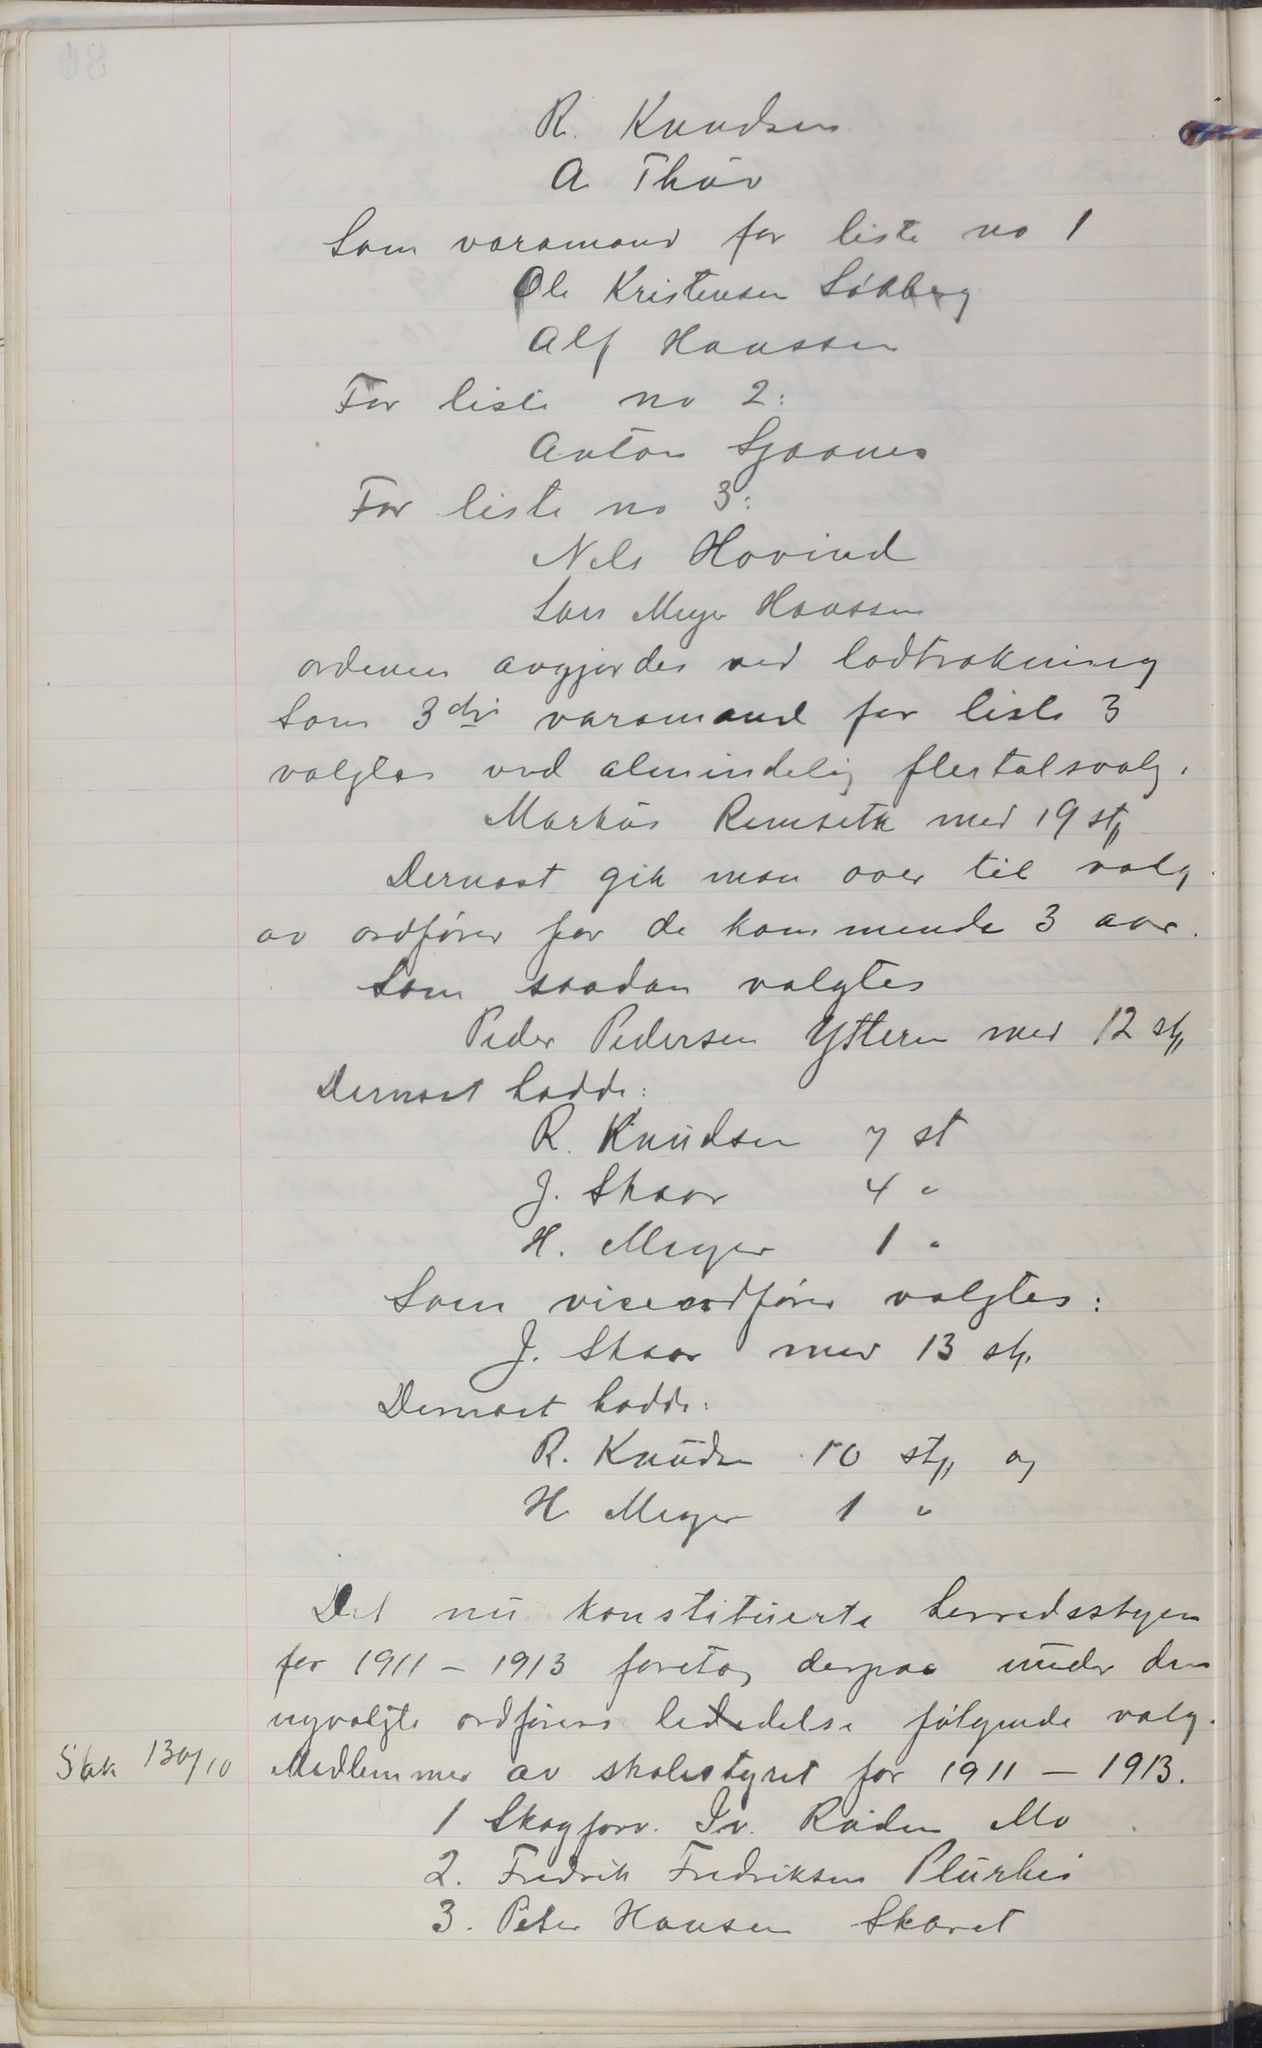 R. Knudsen
A. Thuv
Som varamand for liste no 1
Ole Kristensen Søkberg
Alf Hanssen
For liste no 2:
Anton Sjaanes
For liste no 3:
Nils Hovind
Lars Meyer Hanssen
ordenen avgjordes ved lodtrækning
Som 3die varamand for liste 3
valgtes ved almindelig flertalsvalg.
Markus Remseth med 19 st,,
Dernæst gik man over til valg
av ordfører for de kommende 3 aar.
Som saadan valgtes
Peder Pedersen Ytteren med 12 st,,
Dernæst hadde:
R. Knudsen 7 st
J. Skaar 4 "
H. Meyer 1 "
Som viceordfører valgtes:
J. Skaar med 13 st.
Dernæst hadde:
R. Knudsen 10 st,, og
H. Meyer 1 "
Det nu konstituerte herredsstyre
for 1911 – 1913 foretog derpaa under den
nyvalgte ordførers ledelse følgende valg.
Sak 130/10 Medlemmer av skolestyret for 1911 – 1913.
1 Skogforv. Iv. Ruden Mo
2. Fredrik Fredriksen Plurhei
3. Peter Hansen Skaret